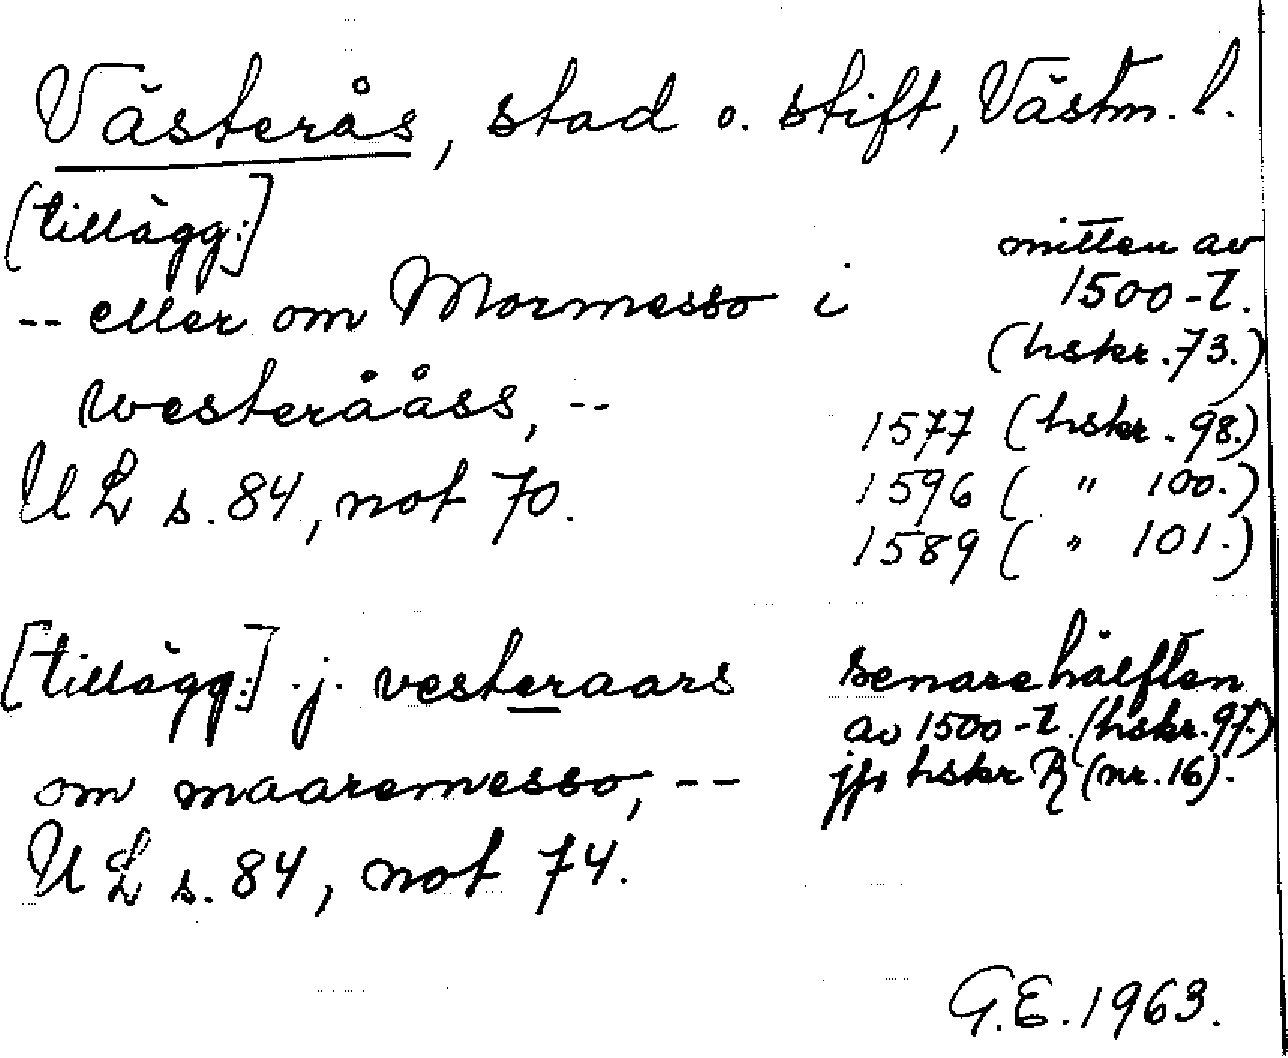 Västerås, stad o. stift, Västm. l.
[tillägg:]
-- eller om Mormesso i
westerååss, --
UL s. 84, not 70.
mitten av
1500-t.
(hskr. 73.)
1577 (hskr. 98.)
1596 ( " 100.)
1589 ( " 101.)
[tillägg:] j. vesteraars
om maaremesso, --
UL s. 84, not 74.
senare hälften
av 1500-t. (hskr. 97.)
jfr hskr B (nr. 16).
G.E. 1963.